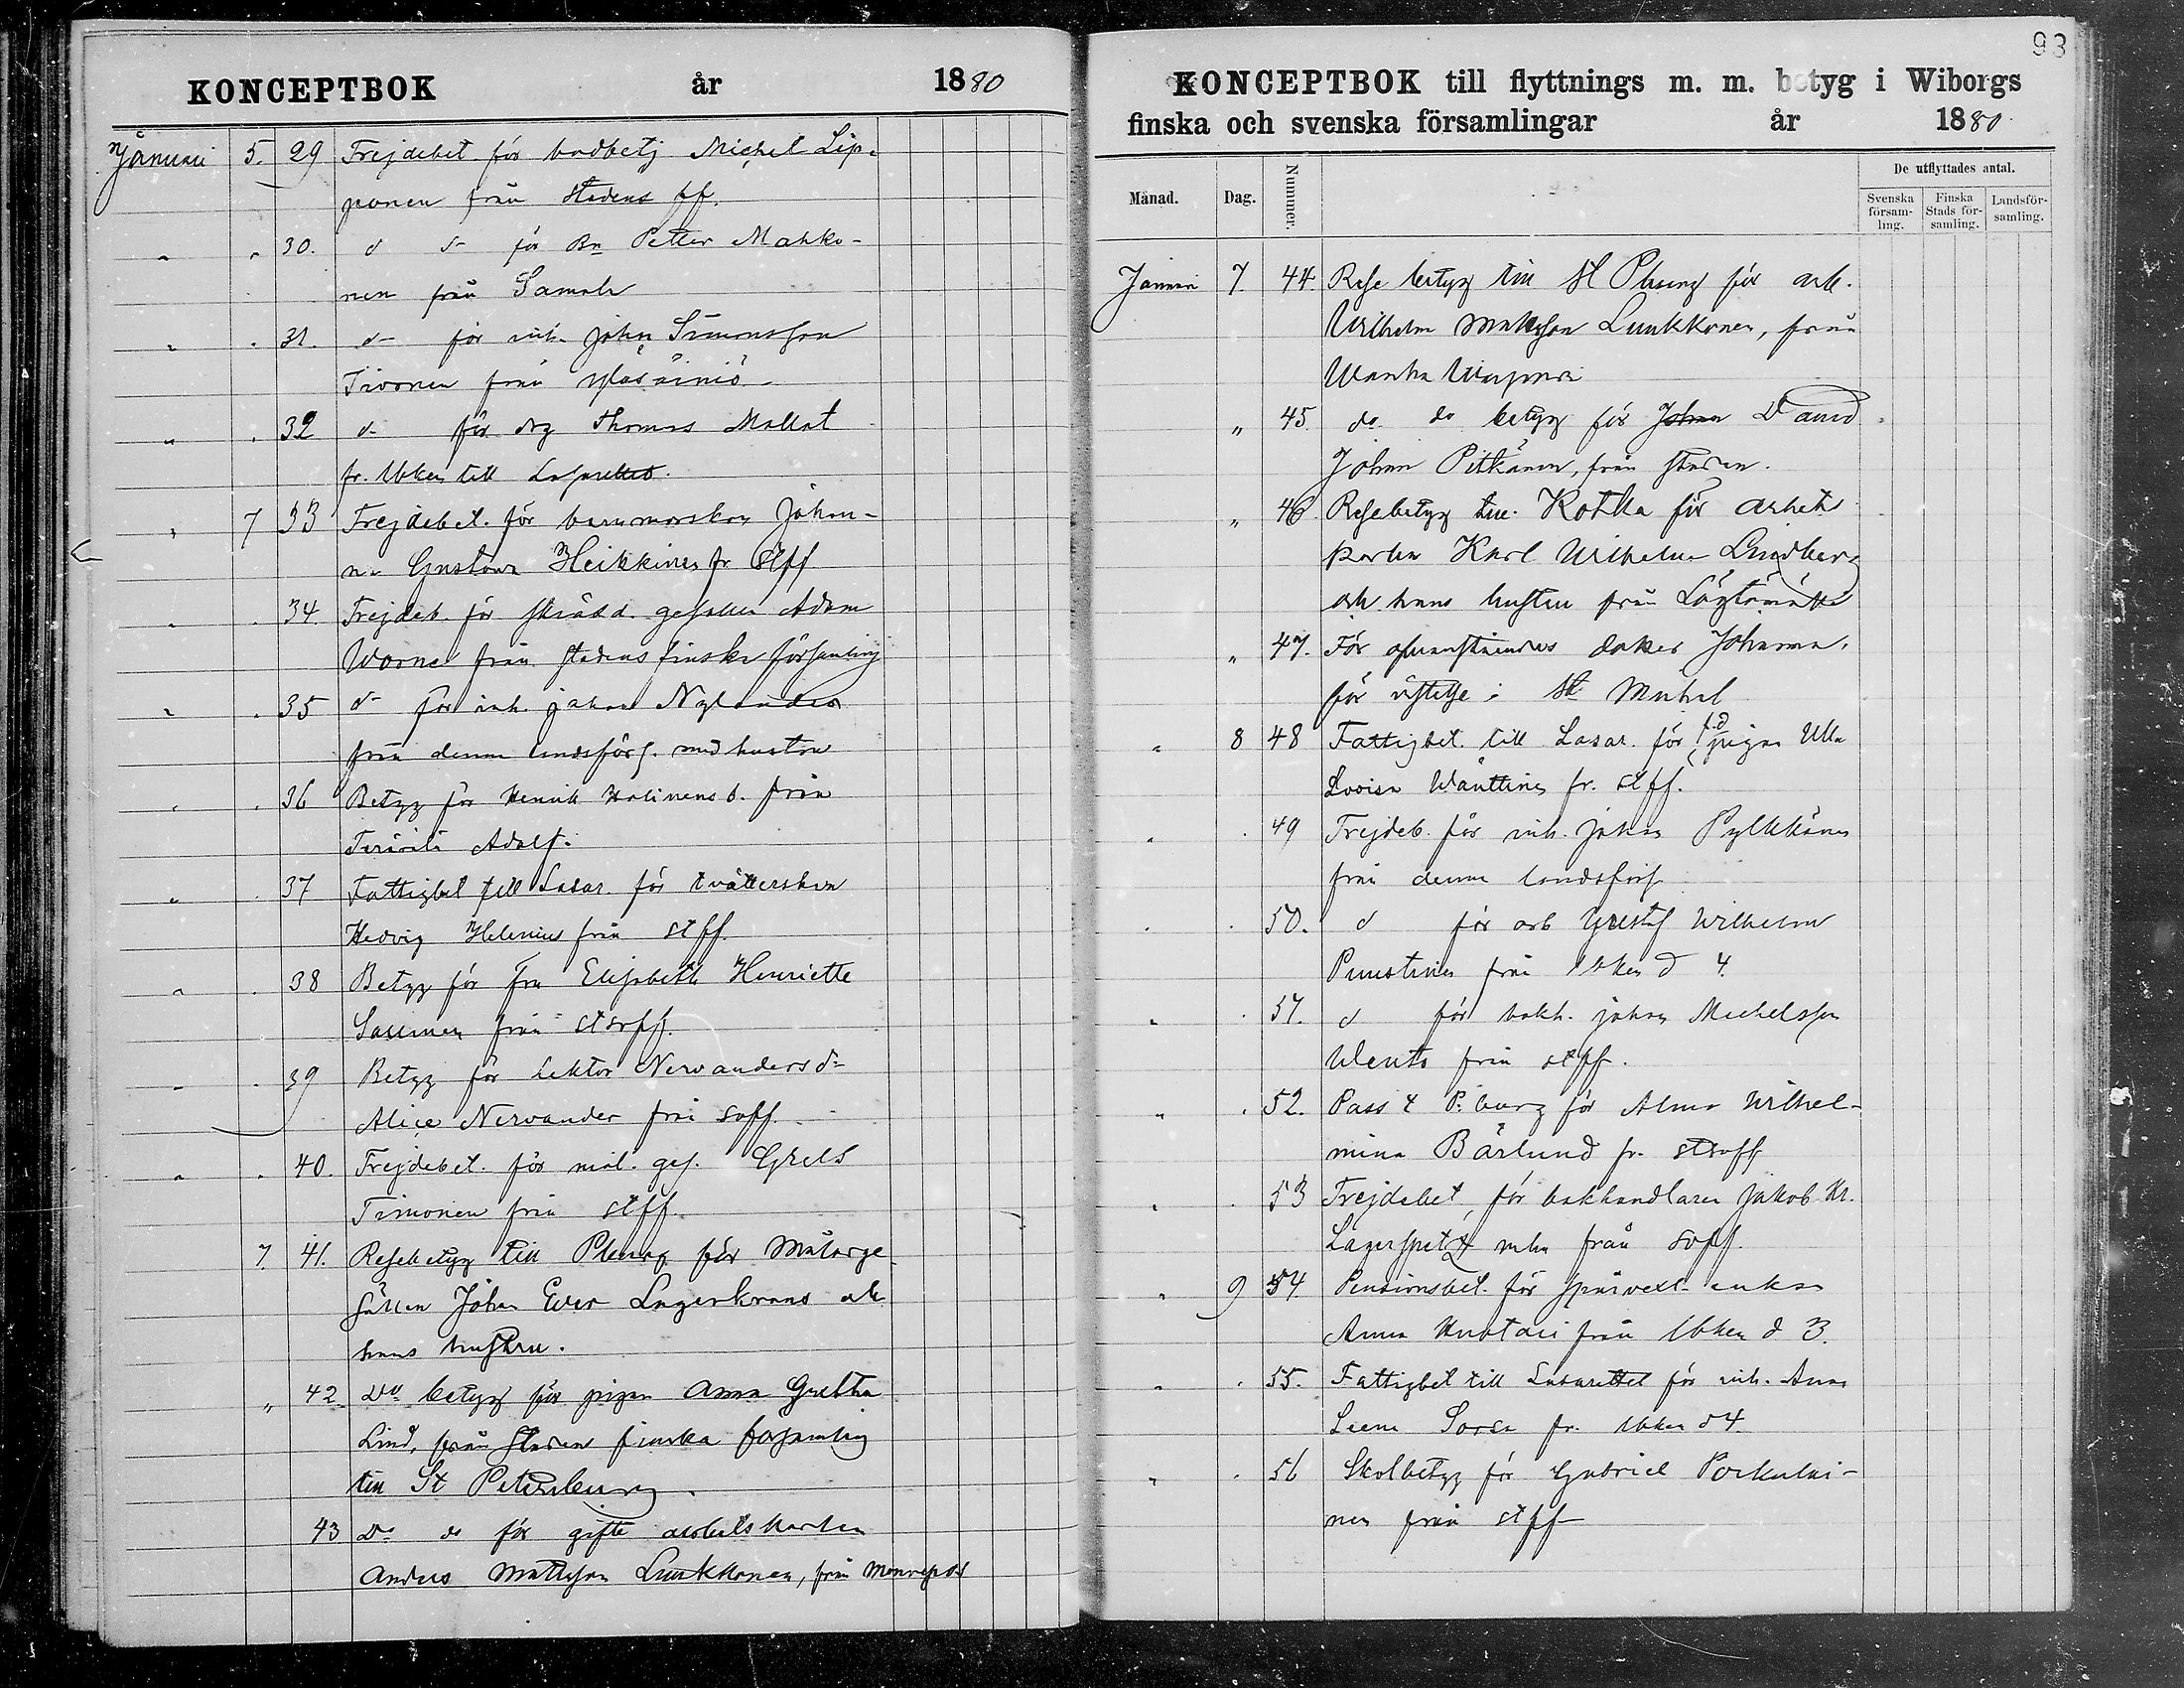 KONCEPTBOK år 1880
Januari 5. 29 Frejdebet för bodbetj Michel Lip-
ponen från stadens ff.
" " 30. d d- för Bn Petter Mahko-
nen från Samola
" " 31. d- för inh. Johan Simonsson
Tivonen från
" " 32 d- för drg Thomas Mallat
fr. Wken till Lasarettet.
" 7 33 Frejdebet. för barnmorskan Johan-
na Gustava Heikkinen fr Stff
" " 34. Frejdeb. för skrädd. gesällen Adam
Worne från stadens finska församling
" " 35 d- för inh. Johan Nylander
från denna landsförs. med hustru
" " 36 Betyg för Henrik d. från
Terivili Adolf.
" " 37 Fattigbet till Lasar. för tvätterskan
Hedvig Helenius från stff.
" " 38 Betyg för fru Elisabeth Henriette
från stsvff.
" " 39 Betyg för Lektor Nervanders d-
Alice Nervander från svff.
" " 40. Frejdebet. för mål. ges. Grels
Timonen från stff.
7. 41. Resebetyg till Pburg för Målarge-
sällen Johan Lagerkrans och
hans hustru.
" 42. Do betyg för pigan Anna Gretha
Lind, från stadens finska församling
till St Petersburg.
43 Do do för gifte arbetskarlen
Anders Mattsson Luukkonen, från Monrepos
93
KONCEPTBOK till flyttnings m. m. betyg i Wiborgs
finska och svenska församlingar år 1880.
Månad. Dag. Nummer. De utflyttades antal.
Svenska församling. Finska Stads församling. Landsförsamling.
Januari 7. 44. Rese betyg till St Pburg för arb.
Wilhelm Mattsson Luukkonen, från
Wanha
" 45. do do betyg för Johan David
Johan Pitkänen, från staden.
" 46. Resebetyg till Kotka för arbets
karlen Karl Wilhelm Lindberg
och hans hustru från
" 47. För dotter Johanna,
för vistelse i St Michel
" 8 48 Fattigbet. till Lasar. för f.d pigan Ulla
Lovisa Wänttinen fr. stff.
" " 49 Frejdeb. för inh. Johan Pylkkänen
från denna landsförs.
" " 50. d för arb Gustaf Wilhelm
Puustinen från Wken d 4.
" " 51. d för bokh. Johan Michelsson
Wento från stff.
" " 52. Pass t P:burg för Alma Wilhel-
mina Bärlund fr. stsvff
" " 53 Frejdebet, för bokhandlaren Jakob Kr.
Lagerspetz från svff.
" 9 54. Pensionsbet. för enkan
Anna från Wken d 3.
" " 55. Fattigbet till Lasarettet för inh. Anna
Leena Sorsa fr. Wken d 4.
" " 56 Skolbetyg för Gabriel
nen från stff